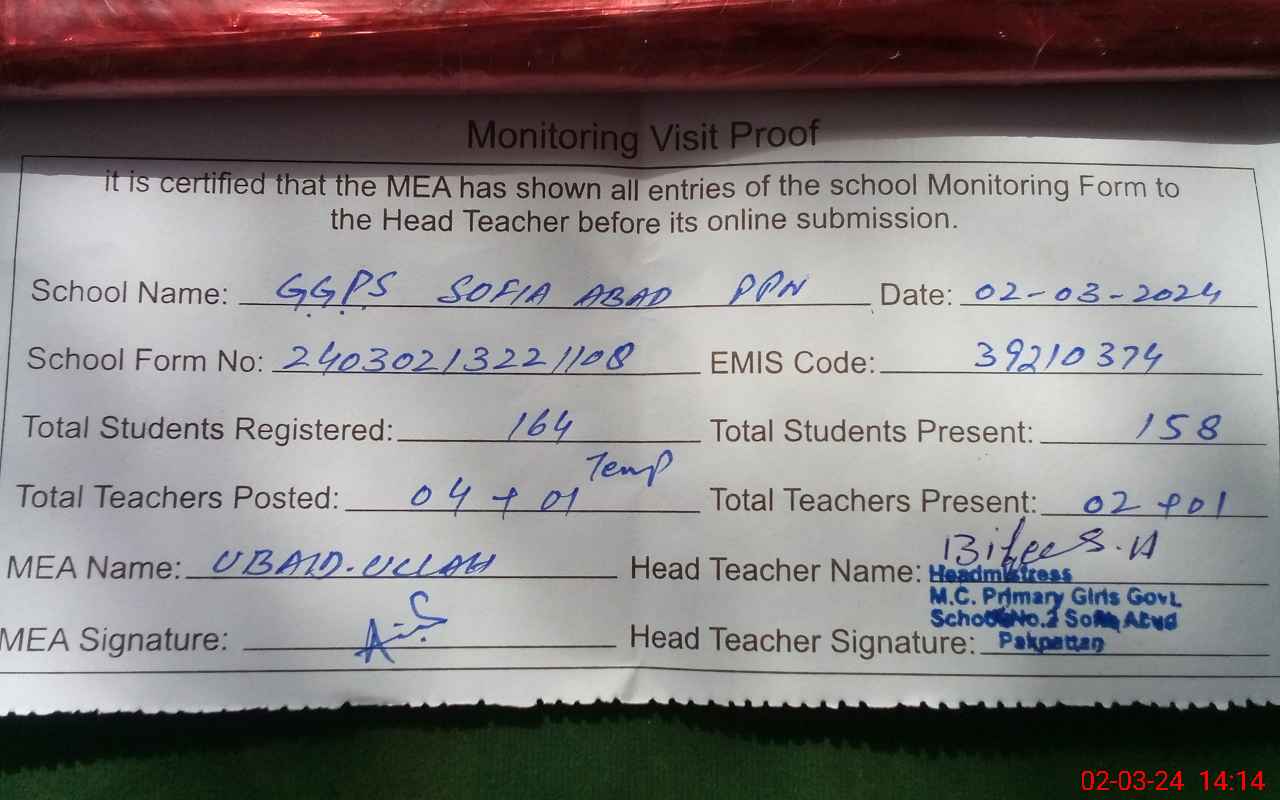 Monitoring Visit Proof
it is certified that the MEA has shown all entries of the school Monitoring Form to
the Head Teacher before its online submission.
School Name: G.G.P.S SOFIA ABAD PPN Date: 02-03-2024
School Form No: 24030213221108 EMIS Code: 39210374
Total Students Registered: 164 Total Students Present: 158
Temp
Total Teachers Posted: 04 + 01 Total Teachers Present: 02 + 01
MEA Name: UBAID.ULLAH Head Teacher Name:
Headmistress
M.C. Primary Girls Govt.
School No.2 Sofia Abad
MEA Signature: Head Teacher Signature: Pakpattan
02-03-24 14:14